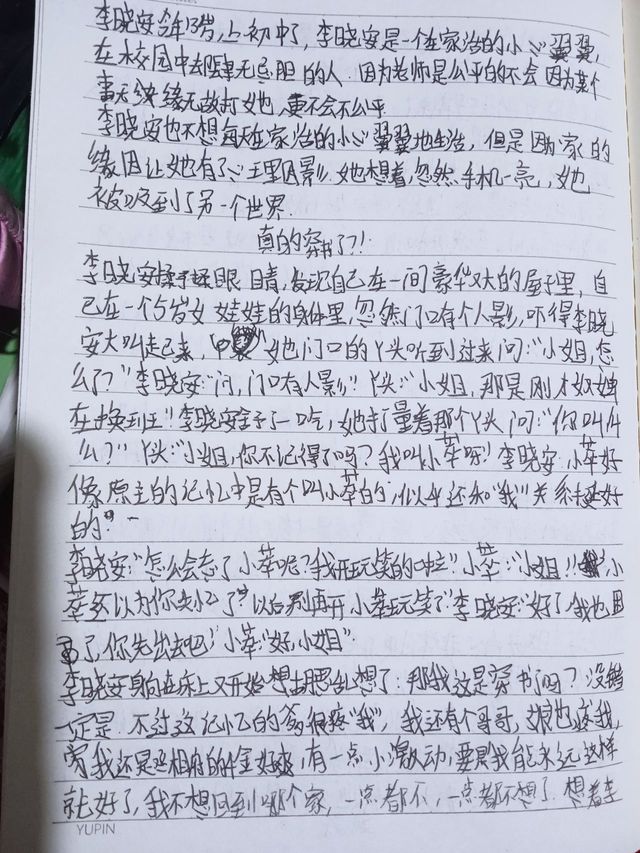 李晓安今年13岁,上初中了,李晓安是一个在家活的小心翼翼,
在校园中却肆无忌胆的人.因为老师是公平的不会因为某个
事无缘无故打她,更不会不公平
李晓安也不想每天在家活的小心翼翼地生活,但是因为家的
缘因让她有了心里阴影.她想着,忽然手机一亮,她
被吸到了另一个世界.
真的穿书了?!
李晓安揉了揉眼睛,发现自己在一间豪华又大的屋子里,自
己在一个5岁女娃娃的身体里,忽然门口有个人影,吓得李晓
安大叫起来,她门口的丫头听到过来问:"小姐,怎
么了?"李晓安:"问,门口有人影!"丫头:"小姐,那是刚才奶妈
在换班!"李晓安了一吃,她打量着那个丫头问:"你叫什
么?"丫头:"小姐,你不记得了吗?我叫小萃呀!李晓安:小萃好
像原主的记忆中是有个叫小萃的,似乎还和"我"关系挺好
的."
李晓安:"怎么会忘了小萃呢?我开玩笑的"小萃:"小姐!!小
萃多以为你失忆了"以后别再开小萃玩笑了"李晓安:"好了,我也困
了,你先出去吧!"小萃:"好,小姐".
李晓安身向在床上又开始想胡思乱想了:那我这是穿书了吗?没错
一定是.不过这记忆的爹很疼"我",我还有个哥哥,娘也疼我,
我还是丞相府的千金好爽,有一点小激动,要是我能永远这样
就好了,我不想回到哪个家,一点都不,一点都不想了.想着
YUPIN